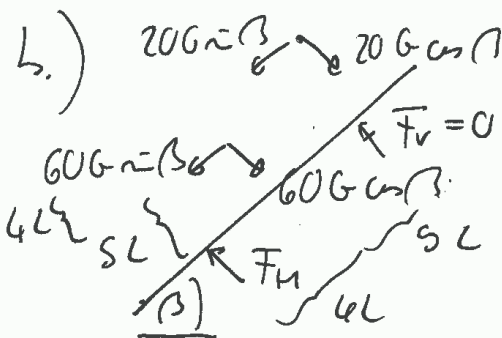 b.) 20G sin β 20G cos β
F_V = 0
60G sin β 60G cos β
4L 5L F_H 5L
β 4L